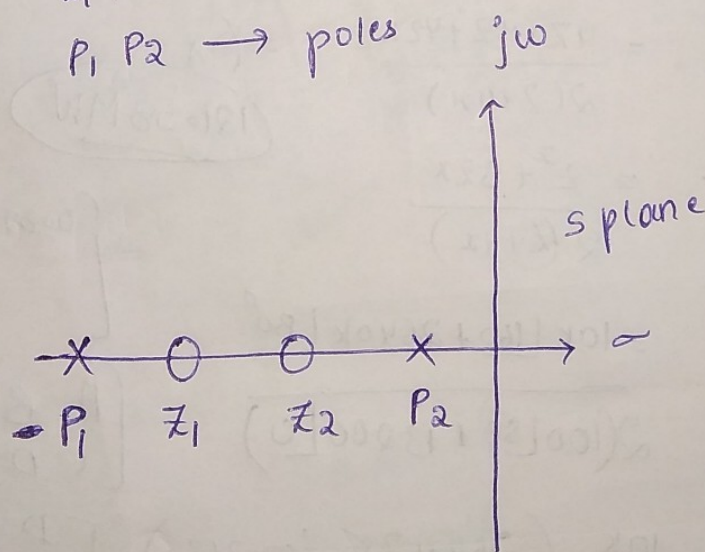 P1 P2 → poles jω
s plane
σ
- P1 Z1 Z2 P2